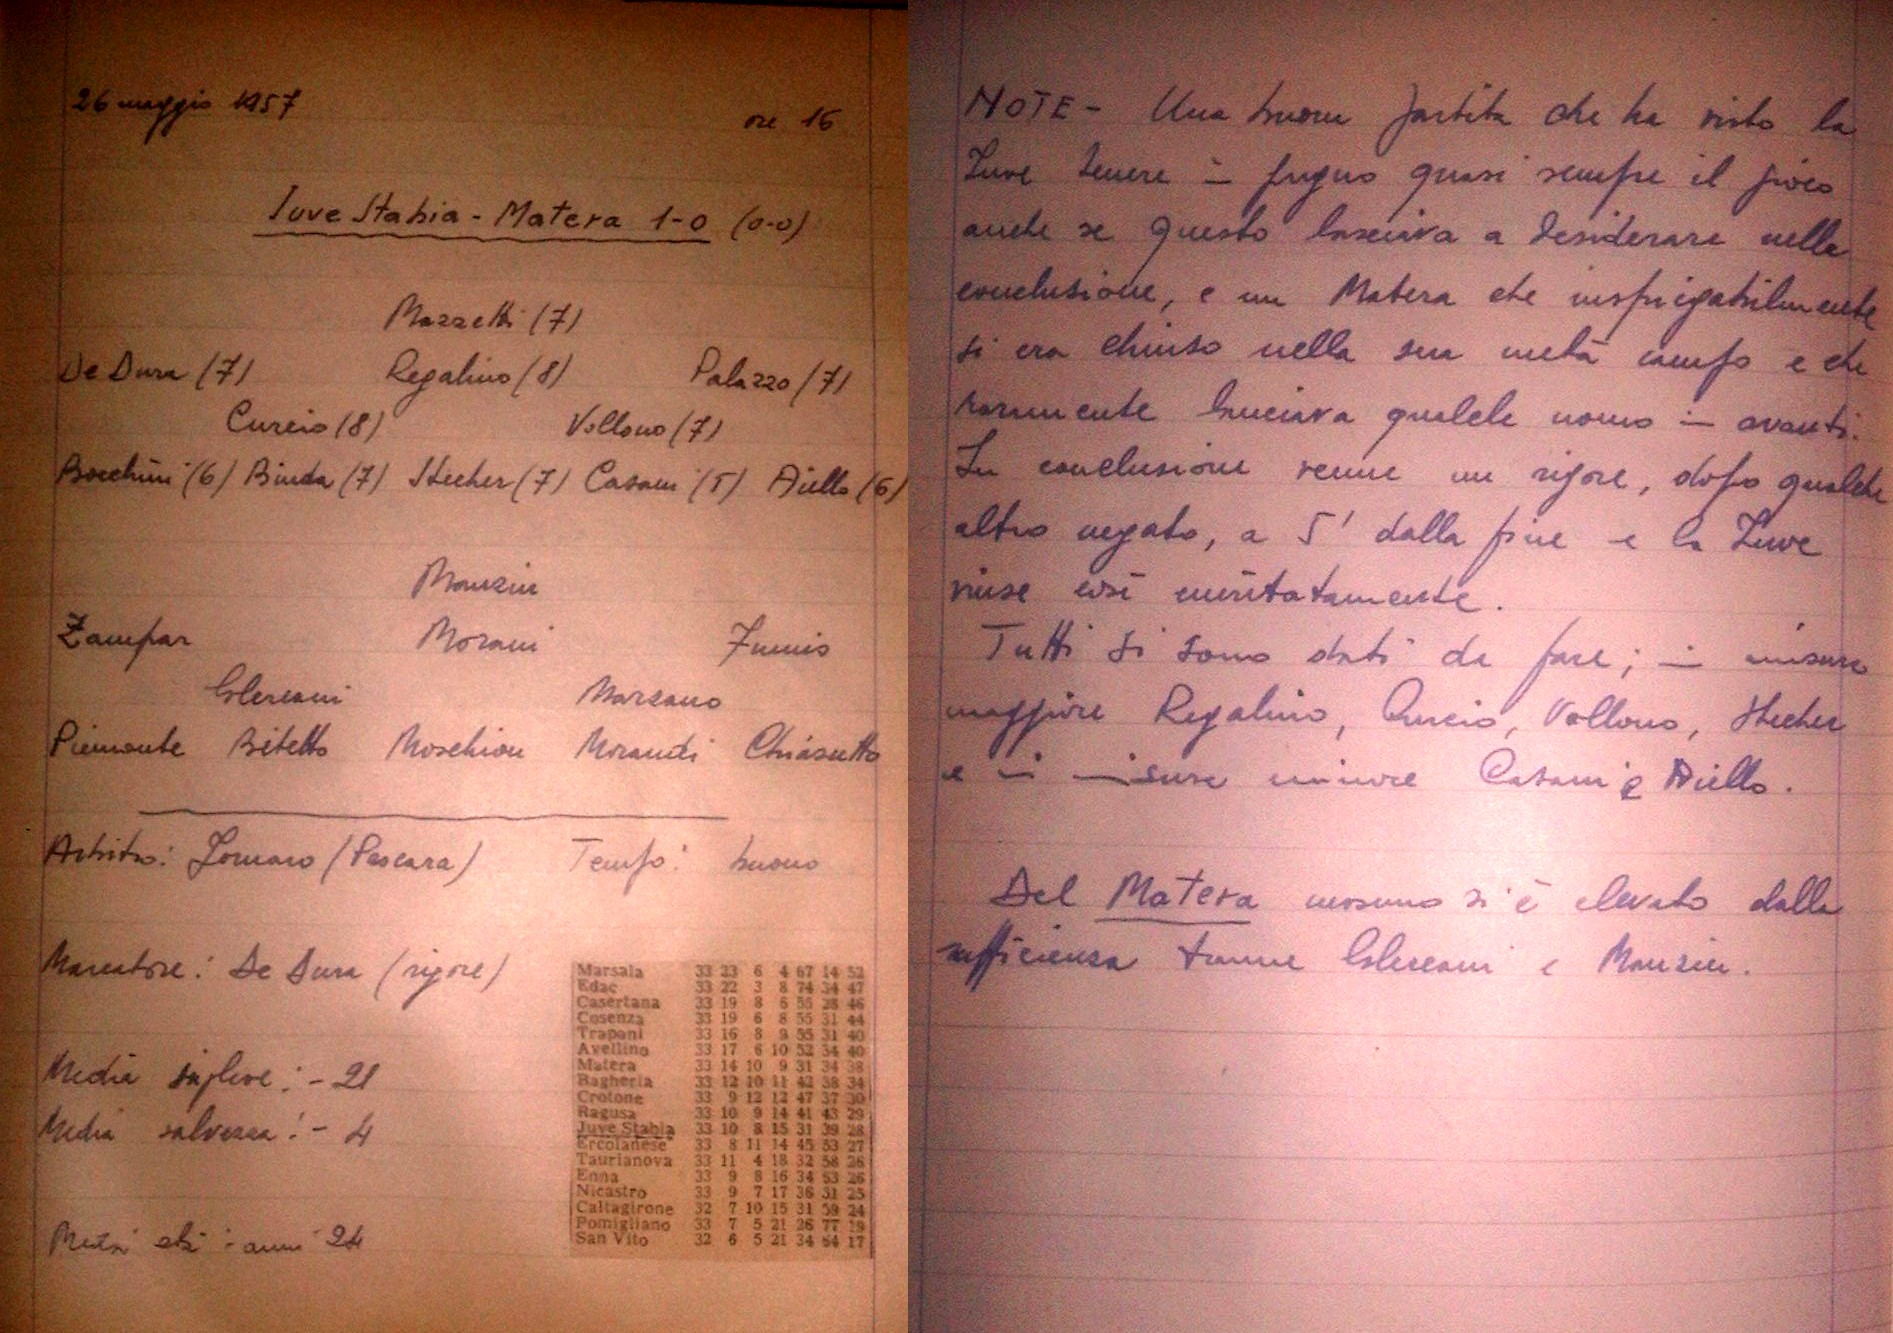 26 maggio 1957
ore 16
Iuve Stabia - Matera 1-0 (0-0)
Mazzetti (7)
De Dura (7) Regalino (8) Palazzo (7)
Curcio (8) Vollono (7)
Bocchini (6) Binda (7) Stecher (7) Casani (5) Aiello (6)
Manzin
Zampar Morani Fumis
Clereani Marzano
Piemonte Bitetto Moschion Morandi Chiasutto
Arbitro: (Pescara) Tempo: buono
Marcatore: De Dura (rigore)
Media inglese: - 21
Media salvezza: - 4
Media età: anni 24
Marsala 33 23 6 4 67 14 52
Edac 33 22 3 8 74 34 47
Casertana 33 19 8 6 55 28 46
Cosenza 33 19 6 8 55 31 44
Trapani 33 16 8 9 55 31 40
Avellino 33 17 6 10 52 34 40
Matera 33 14 10 9 31 34 38
Bagheria 33 12 10 11 42 38 34
Crotone 33 9 12 12 47 37 30
Ragusa 33 10 9 14 41 43 29
Juve Stabia 33 10 8 15 31 39 28
Ercolanese 33 8 11 14 45 53 27
Taurianova 33 11 4 18 32 58 26
Enna 33 9 8 16 34 53 26
Nicastro 33 9 7 17 36 51 25
Caltagirone 32 7 10 15 31 59 24
Pomigliano 33 7 5 21 26 77 19
San Vito 32 6 5 21 34 64 17
NOTE - Una buona partita che ha visto la
Iuve tenere in pugno quasi sempre il gioco
anche se questo lasciava a desiderare nella
conclusione, e un Matera che inspiegabilmente
si era chiuso nella sua metà campo e che
raramente lanciava qualche uomo in avanti.
In conclusione venne un rigore, dopo qualche
altro negato, a 5' dalla fine e la Iuve
vinse così meritatamente.
Tutti si sono dati da fare; in misura
maggiore Regalino, Curcio, Vollono, Stecher
e in misura minore Casani e Aiello.
Del Matera nessuno si è elevato dalla
sufficienza tranne Clereani e Manzin.